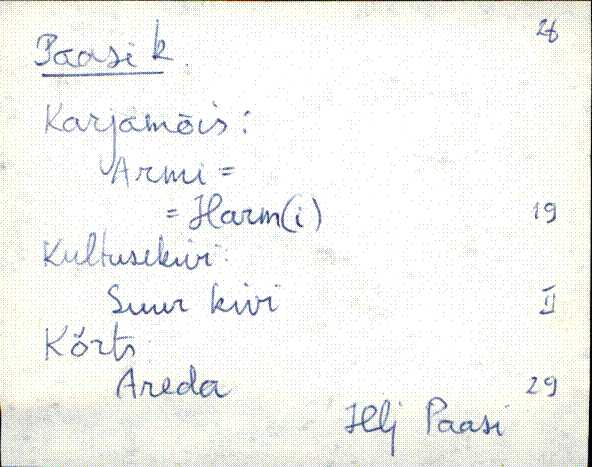 26
Paasi k.
Karjamõis:
Armi =
= Harm(i) 19
Kultusekivi:
Suur kivi II
Kõrts
Areda 29
Hlj Paasi